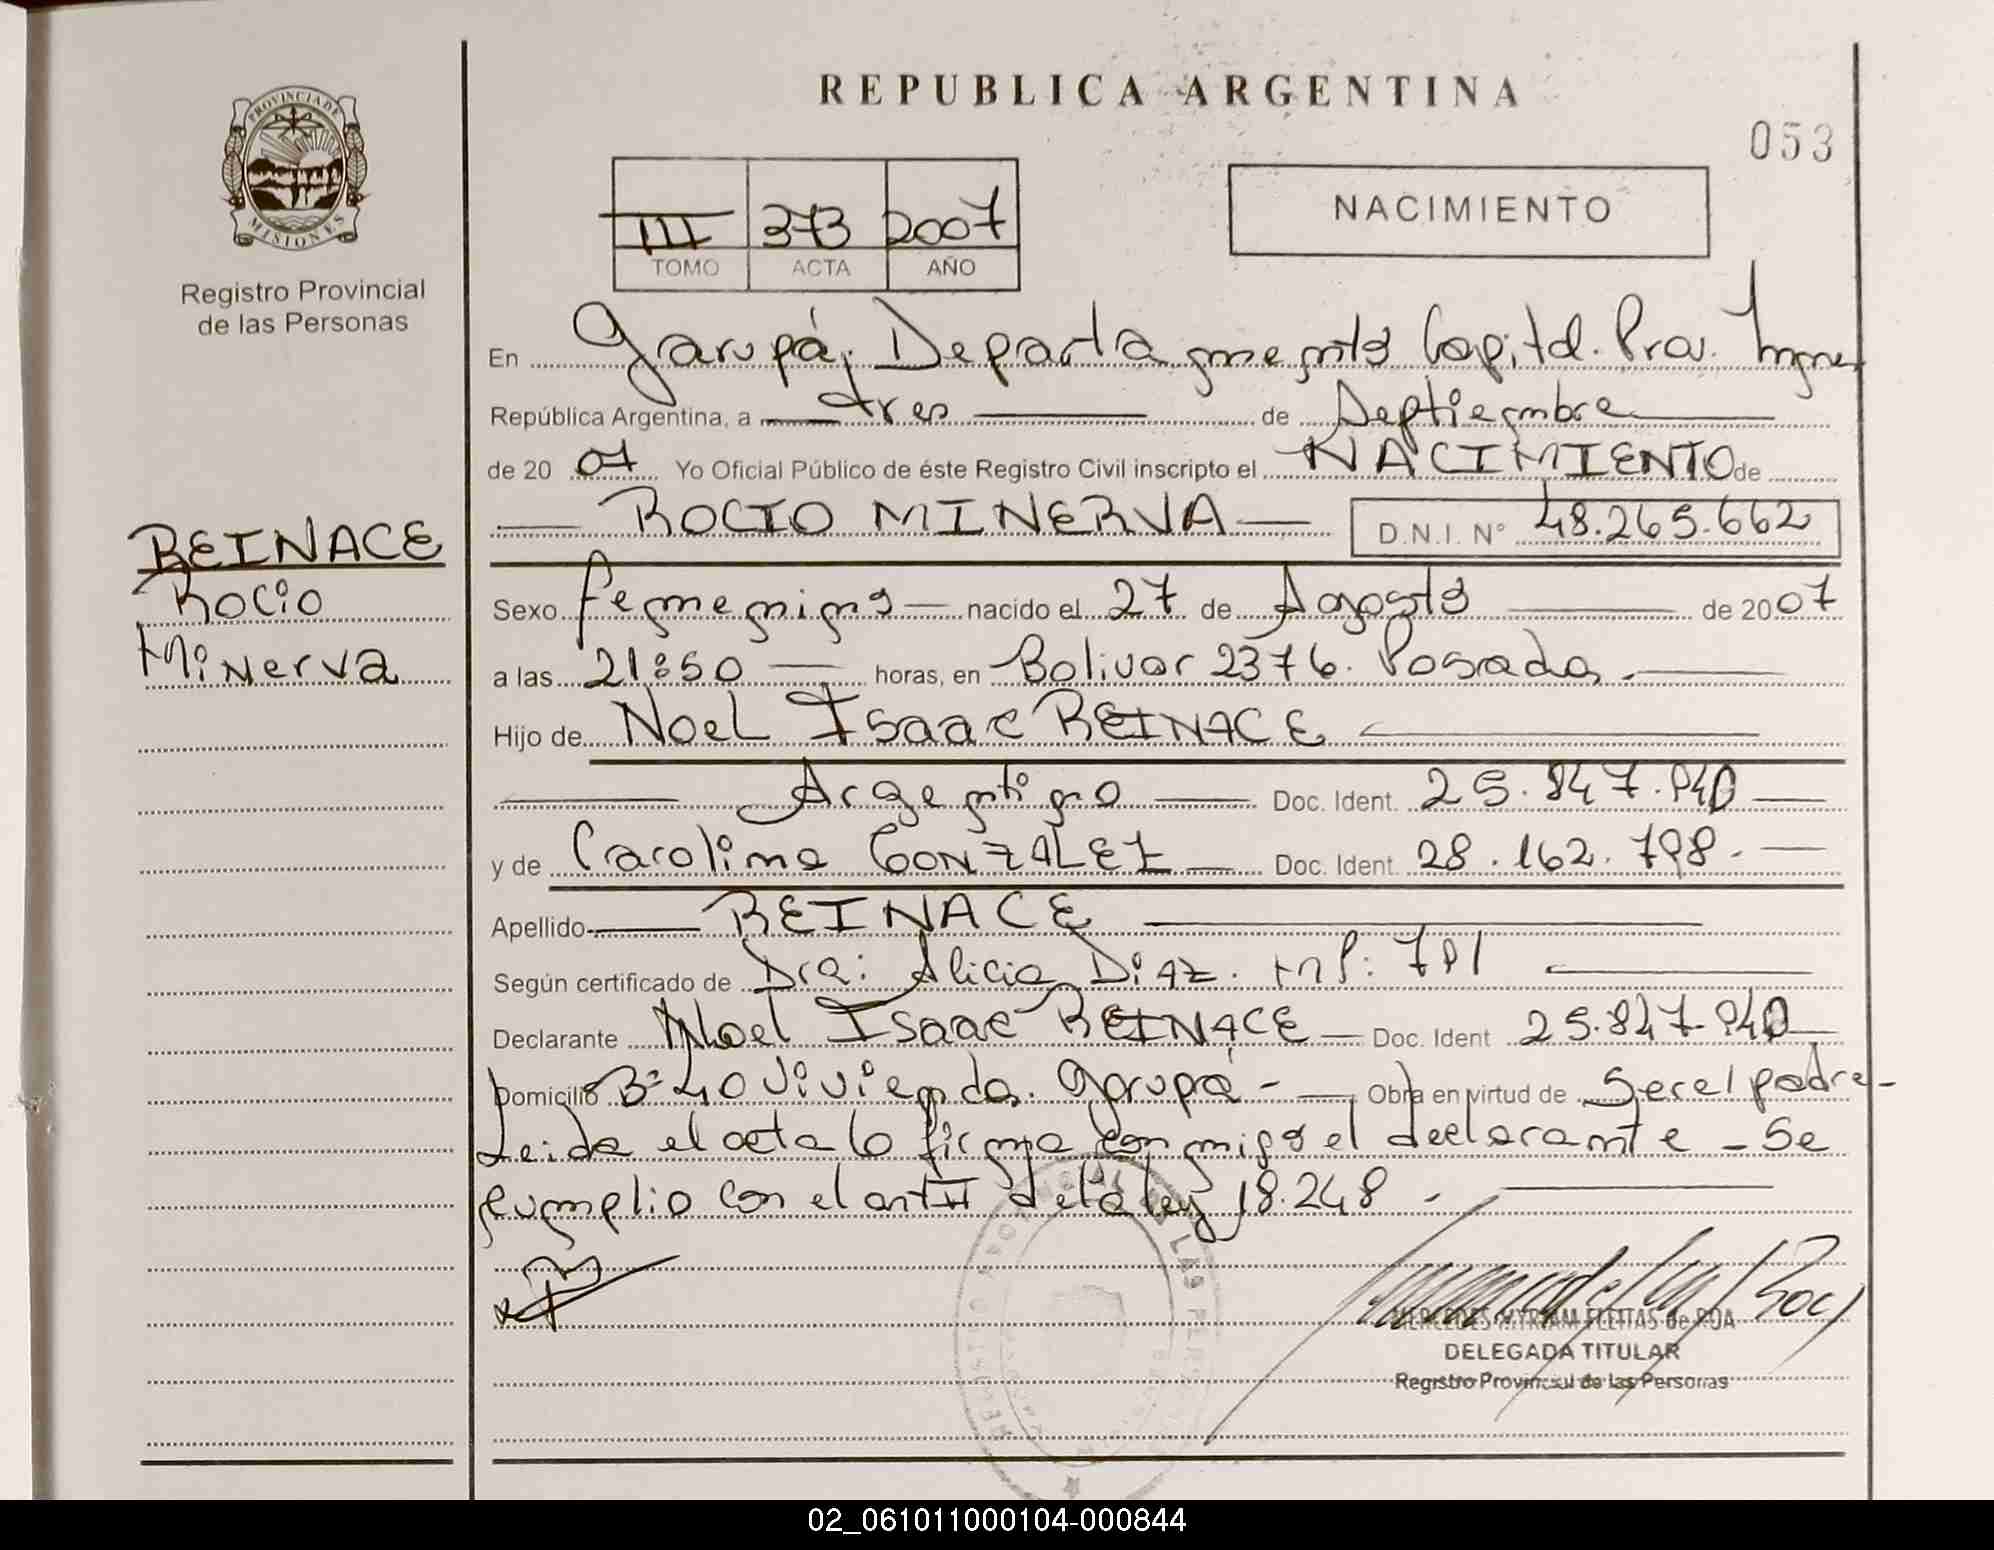 REPUBLICA ARGENTINA
053
PROVINCIA DE
MISIONES
Registro Provincial
de las Personas
III 373 2007
TOMO ACTA AÑO
NACIMIENTO
En Garupá, Departamento Capital. Prov. Mnes
República Argentina, a tres de Septiembre
de 20 07 Yo Oficial Público de éste Registro Civil inscripto el NACIMIENTO de
ROCIO MINERVA D.N.I. N° 48.265.662
REINACE
Rocio
Minerva
Sexo femenino nacido el 27 de Agosto de 2007
a las 21:50 horas, en Bolivar 2376. Posadas
Hijo de Noel Isaac REINACE
Argentino Doc. Ident. 25.847.940
y de Carolina GONZALEZ Doc. Ident. 28.162.798.
Apellido REINACE
Según certificado de Dra: Alicia Diaz. MP: 791
Declarante Noel Isaac REINACE Doc. Ident 25.847.940
Domicilio B° 40 Viviendas. Garupá - Obra en virtud de Ser el padre -
Leida el acta lo firma conmigo el declarante - Se
cumplio con el art II de la ley 18.248 -
MERCEDES MYRIAM FLEITAS de ROA
DELEGADA TITULAR
Registro Provincial de las Personas
02_061011000104-000844